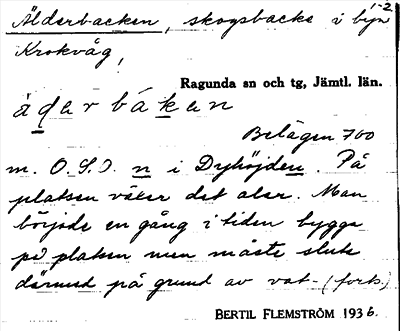 1-2
Ålderbacken, skogsbacke i byn
Krokvåg,
Ragunda sn och tg, Jämtl. län.
Belägen 700
m. O.S.O. n i Dyhöjden. På
platsen växer det alar. Man
började en gång i tiden bygga
på platsen men måste sluta
därmed på grund av vat- (forts.)
BERTIL FLEMSTRÖM 1936.